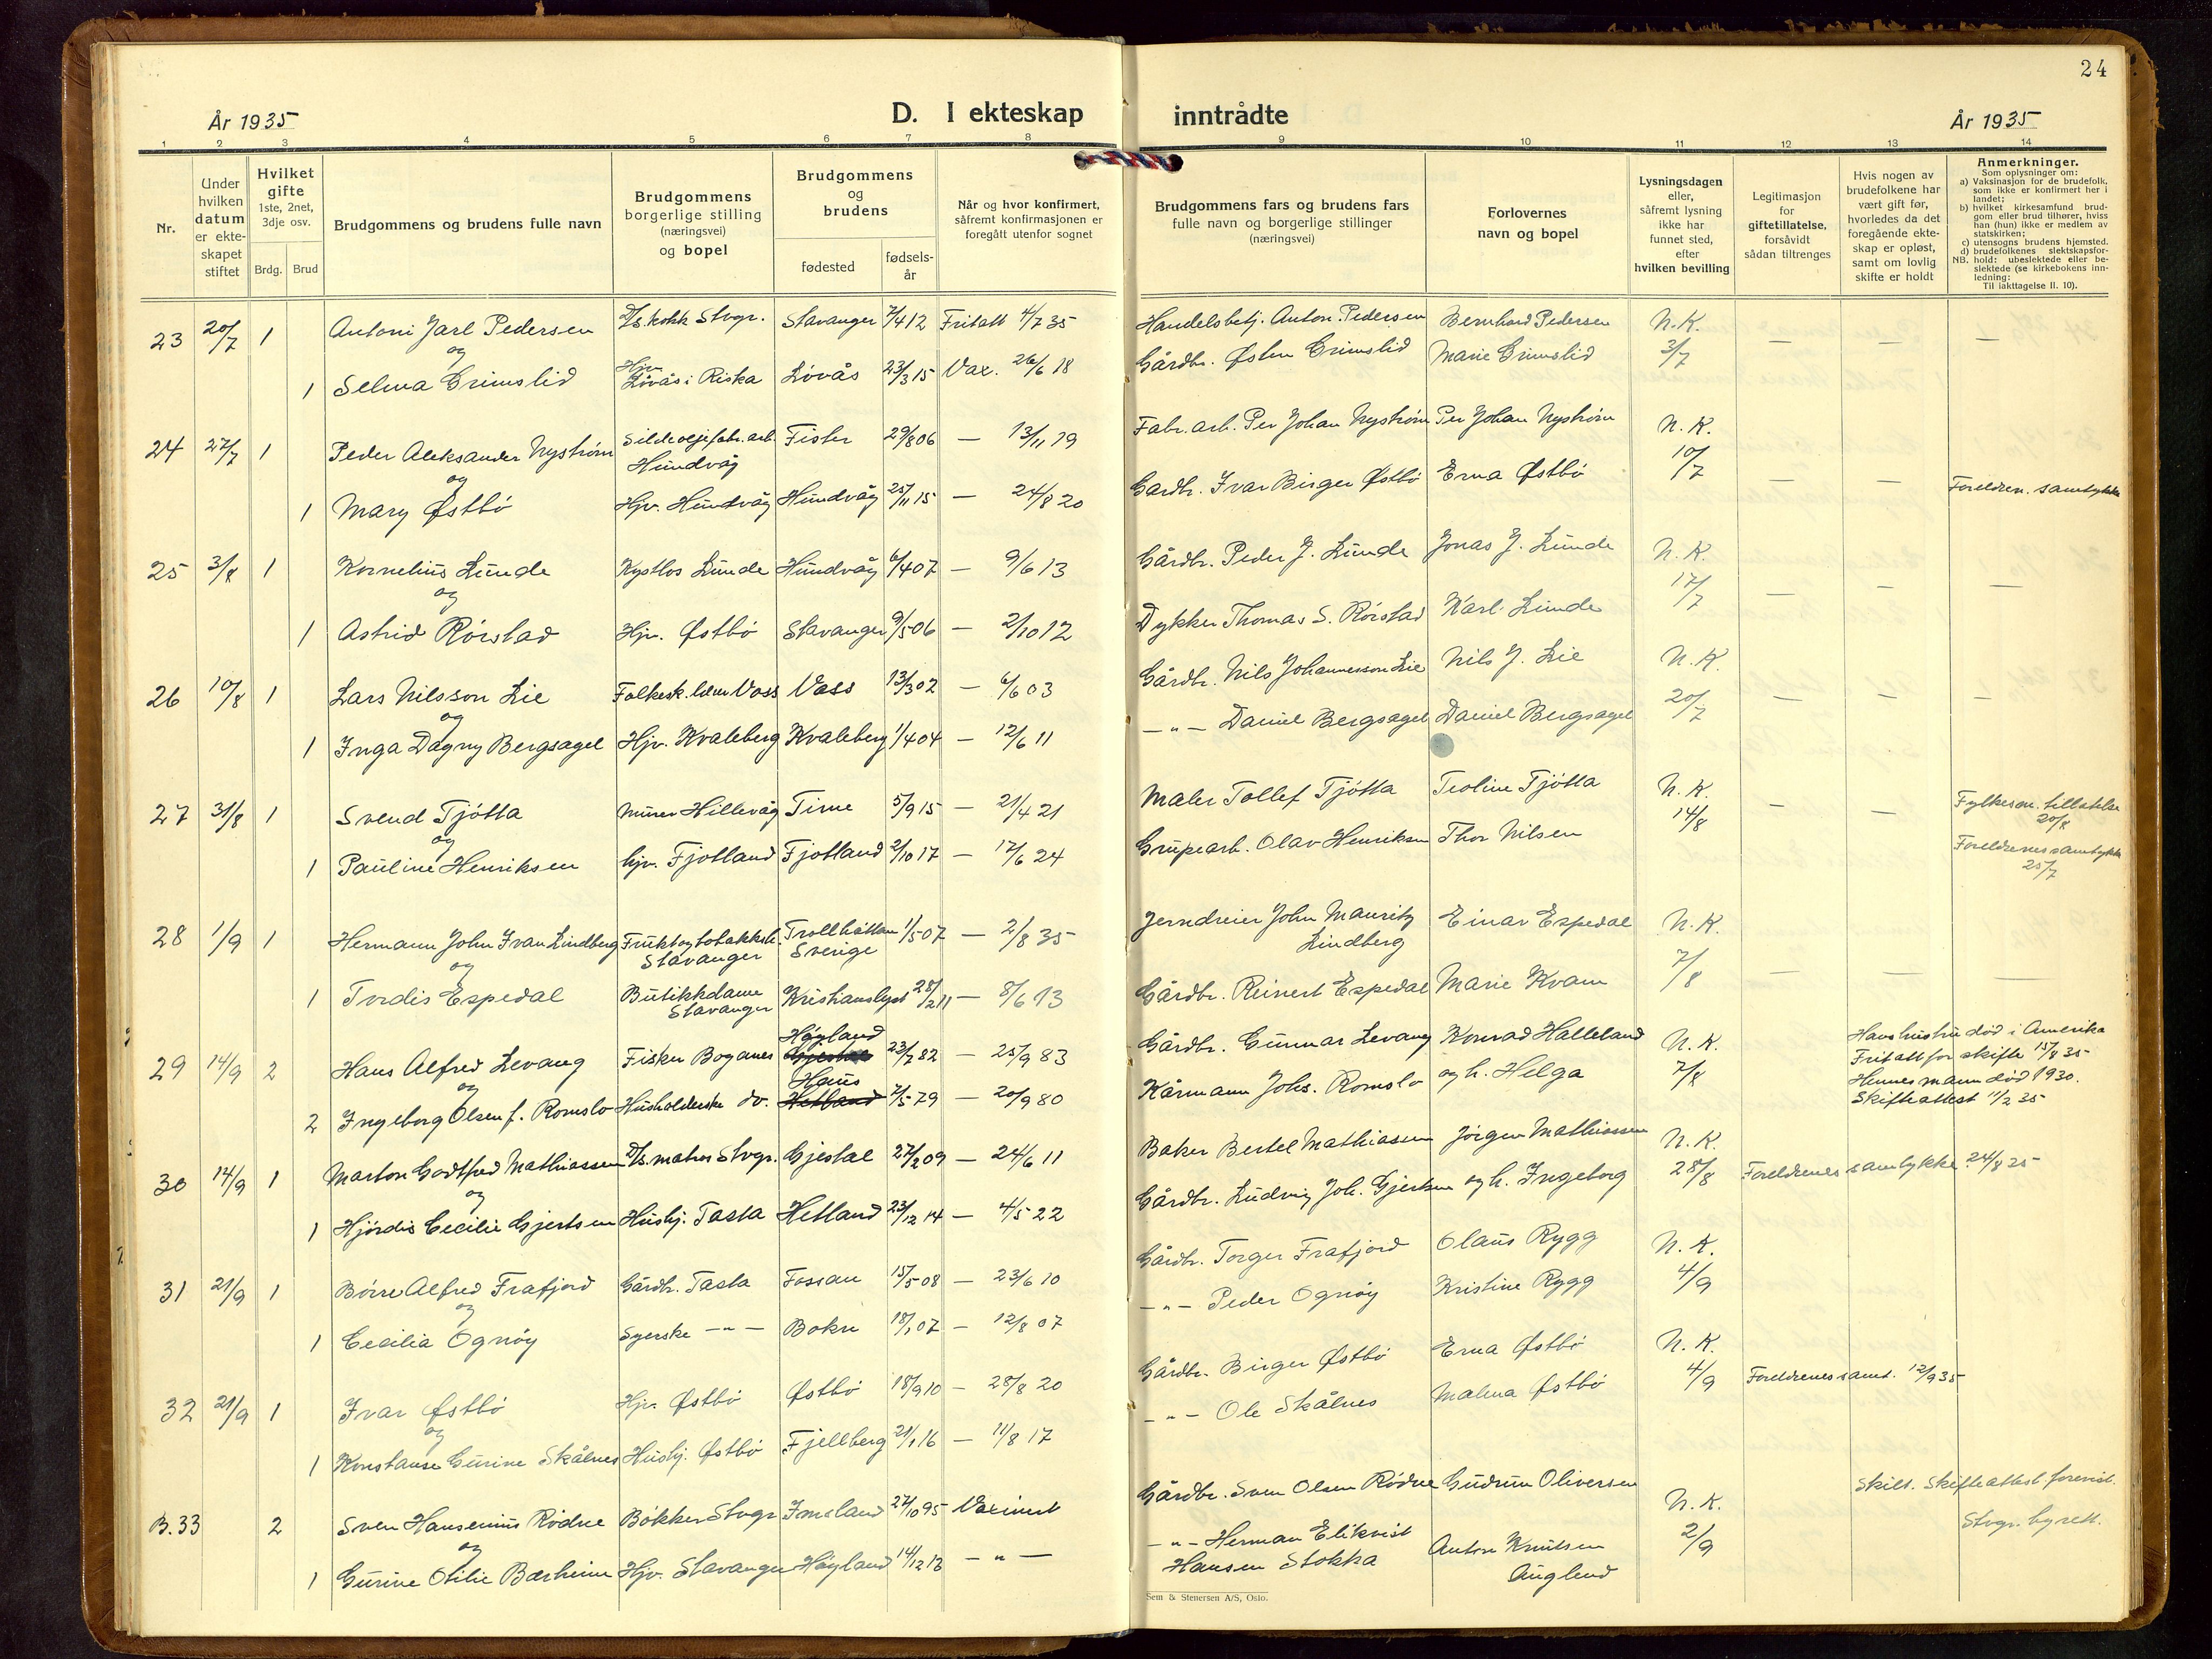 24
År 1935
D. I ekteskap
inntrådte
År 1935
1 2 3 4 5 6 7 8 9 10 11 12 13 14
Nr.
Under hvilken datum er ekteskapet stiftet
Hvilket gifte 1ste, 2net, 3dje osv.
Brdg. Brud
Brudgommens og brudens fulle navn
Brudgommens borgerlige stilling (næringsvei) og bopel
Brudgommens og brudens
fødested
fødsels-år
Når og hvor konfirmert, såfremt konfirmasjonen er foregått utenfor sognet
Brudgommens fars og brudens fars fulle navn og borgerlige stillinger (næringsvei)
Forlovernes navn og bopel
Lysningsdagen eller, såfremt lysning ikke har funnet sted, efter hvilken bevilling
Legitimasjon for giftetillatelse, forsåvidt sådan tiltrenges
Hvis nogen av brudefolkene har vært gift før, hvorledes da det foregående ekteskap er opløst, samt om lovlig skifte er holdt
Anmerkninger.
Som oplysninger om:
a) Vaksinasjon for de brudefolk, som ikke er konfirmert her i landet;
b) hvilket kirkesamfund brudgom eller brud tilhører, hviss han (hun) ikke er medlem av statskirken;
c) utensogns brudens hjemsted.
d) brudefolkenes slektskapsforhold: ubeslektede eller beslektede (se kirkebokens innledning:
NB.
Til iakttagelse II. 10).
23 20/7 1 Antoni Jarl Pedersen D/S. kokk Stvgr. Stavanger 7/4 12 Fritatt 4/7 35 Handelsbetj. Anton Pedersen Bernhard Pedersen N.K.
og
1 Selma Grimslid Hjv. Lövås i Riska Lövås 23/3 15 Vax. 26/6 18 Gårdbr. Østen Grimslid Marie Grimslid 3/7 — — —
24 27/7 1 Peder Aleksander Nyström Sildeoljefabr. arb. Hundvåg Fister 29/8 06 — 13/11 19 Fabr. arb. Per Johan Nyström Per Johan Nyström N.K.
og
1 Mary Østbö Hjv. Hundvåg Hundvåg 25/11 15 — 24/8 20 Gardbr. Ivar Birger Østbö Erna Østbö 10/7 — — Foreldren. samtykke
25 3/8 1 Kornelius Lunde Kystlos Lunde Hundvåg 6/4 07 — 9/6 13 Gårdbr. Peder J. Lunde Jonas J. Lunde N.K.
og
1 Astrid Rörstad Hjv. Østbö Stavanger 9/5 06 — 2/10 12 Dykker Thomas S. Rörstad Karl Lunde 17/7 — — —
26 10/8 1 Lars Nilsson Lie Folkesk. lærer Voss Voss 13/3 02 — 6/6 03 Gårdbr. Nils Johannesson Lie Nils J. Lie N.K.
og
1 Inga Dagny Bergsagel Hjv. Kvaleberg Kvaleberg 1/4 04 — 12/6 11 — " — Daniel Bergsagel Daniel Bergsagel 20/7 — — —
27 31/8 1 Svend Tjötta Murer Hillevåg Time 5/9 15 — 21/4 21 Maler Tollef Tjötta Teoline Tjötta N.K. — — Fylkesm. tillatelse 20/8
og
1 Pauline Henriksen hjv. Fjotland Fjotland 2/10 17 — 17/6 24 Grupearb. Olav Henriksen Thor Nilsen 14/8 Foreldrenes samtykke 25/7
28 1/9 1 Hermann John Ivan Lindberg Frukt og tobakksh. Stavanger Trollhättan Sverige 1/5 07 — 2/8 35 Jerndreier John Mauritz Lindberg Einar Espedal N.K.
og
1 Tordis Espedal Butikkdame Stavanger Kristianslyst 28/2 11 — 8/6 13 Gårdbr. Reinert Espedal Marie Kvam 7/8 — — —
29 14/9 2 Hans Alfred Levang Fisker Boganes Höyland 23/7 82 — 25/9 83 Gårdbr. Gunnar Levang Konrad Halleland N.K. Hans hustru död i Amerika
Fritatt for skifte 15/8 35
og
2 Ingeborg Olsen f. Romslo Husholderske do. Haus Hetland 7/5 79 — 20/9 80 Kårmann Johs. Romslo og h. Helga 7/8 Hennes mann död 1930.
Skifteattest 11/2 35
30 14/9 1 Marton Godtfred Mathiassen D/S. matros Stvgr. Gjestal 27/2 09 — 24/6 11 Baker Bertel Mathiassen Jörgen Mathiassen N.K.
og
1 Hjördis Cecilie Gjertsen Hushj. Tasta Hetland 23/12 14 — 4/5 22 Gårdbr. Ludvig Joh. Gjertsen og h. Ingeborg 28/8 Foreldrenes samtykke 24/8 35
31 21/9 1 Börre Alfred Frafjord Gårdbr. Tasta Fossan 15/5 08 — 23/6 10 Gårdbr. Torger Frafjord Olaus Rygg N.K.
og
1 Cecilia Ognöy Syerske — " — Bokn 18/1 07 — 12/8 07 — " — Peder Ognöy Kristine Rygg 4/9
32 21/9 1 Ivar Østbö Hjv. Østbö Østbö 18/9 10 — 28/8 20 Gårdbr. Birger Østbö Erna Østbö N.K.
og
1 Konstanse Gurine Skålnes Hushj. Østbö Fjellberg 21/1 16 — 11/8 17 — " — Ole Skålnes Malena Østbö 4/9 Foreldrenes samt. 12/9 35
B.33 2 Sven Hansenius Rödne Bökker Stvgr Imsland 27/10 95 Vaxinert Gårdbr. Sven Olsen Rödne Gudrun Oliversen N.K. Skilt. Skifteattest forevist.
Stvgr. byrett.
og
1 Gurine Otilie Bærheim Hjv. Stavanger Höyland 14/12 13 — " — — " — Herman Elikvist Hansen Stokka Anton Knutsen Auglend 2/9
Sem & Stenersen A/S, Oslo.